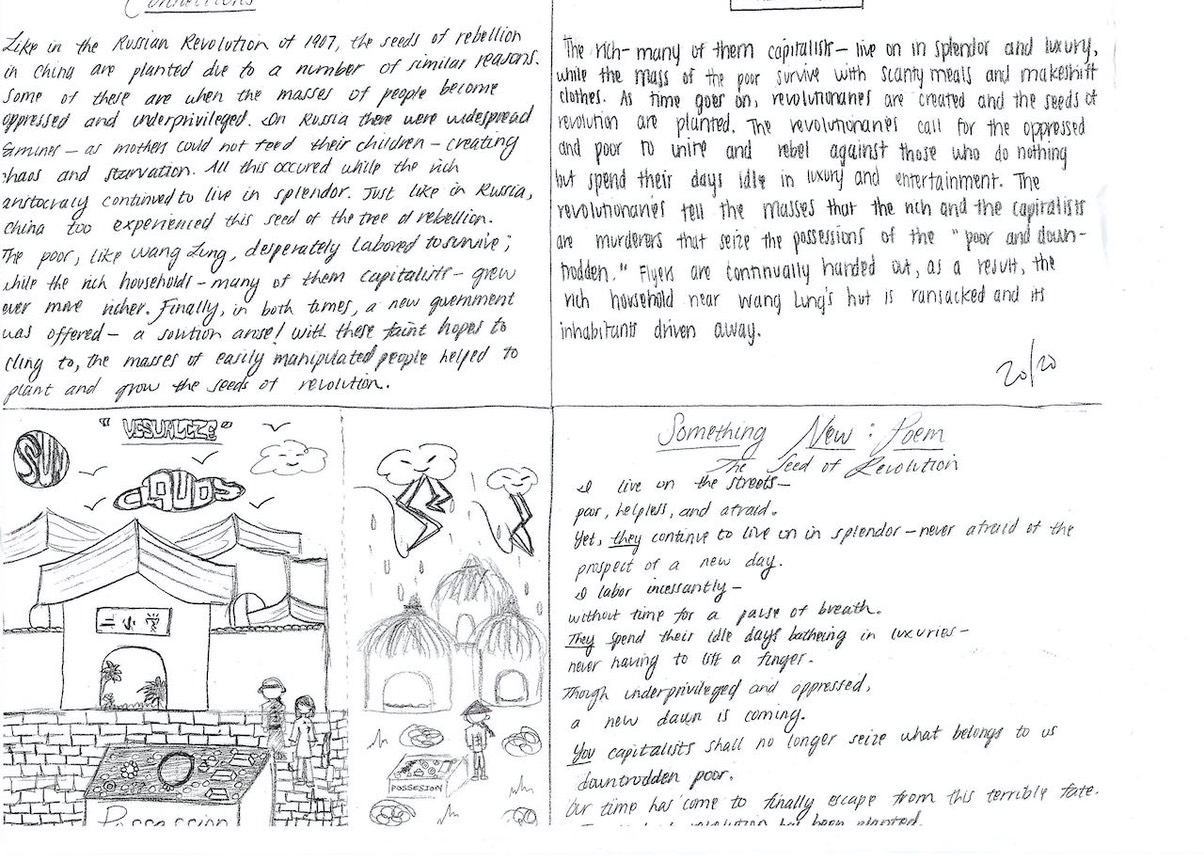 Connections
Like in the Russian Revolution of 1907, the seeds of rebellion
in China are planted due to a number of similar reasons.
Some of these are when the masses of people become
oppressed and underprivileged. In Russia there were widespread
famines — as mothers could not feed their children — creating
chaos and starvation. All this occured while the rich
aristocracy continued to live in splendor. Just like in Russia,
China too experienced this seed of the tree of rebellion.
The poor, like Wang Lung, desperately labored to survive;
while the rich households — many of them capitalists — grew
ever more richer. Finally, in both times, a new government
was offered — a solution arose! With these faint hopes to
cling to, the masses of easily manipulated people helped to
plant and grow the seeds of revolution.
The rich- many of them capitalists — live on in splendor and luxury,
while the mass of the poor survive with scanty meals and makeshift
clothes. As time goes on, revolutionaries are created and the seeds of
revolution are planted. The revolutionaries call for the oppressed
and poor to unite and rebel against those who do nothing
but spend their days idle in luxury and entertainment. The
revolutionaries tell the masses that the rich and the capitalists
are murderers that seize the possessions of the "poor and down-
trodden." Flyers are continually handed out, as a result, the
rich household near Wang Lung's hut is ransacked and its
inhabitants driven away.
20/20
"VISUALIZE"
SUN
CLOUDS
二小
Possession
POSSESION
Something New: Poem
The Seed of Revolution
I live on the streets —
poor, helpless, and afraid.
Yet, they continue to live on in splendor — never afraid of the
prospect of a new day.
I labor incessantly —
without time for a pause of breath.
They spend their idle days batheing in luxuries —
never having to lift a finger.
Though underprivileged and oppressed,
a new dawn is coming.
You capitalists shall no longer seize what belongs to us
downtrodden poor.
Our time has come to finally escape from this terrible fate.
revolution has been planted.